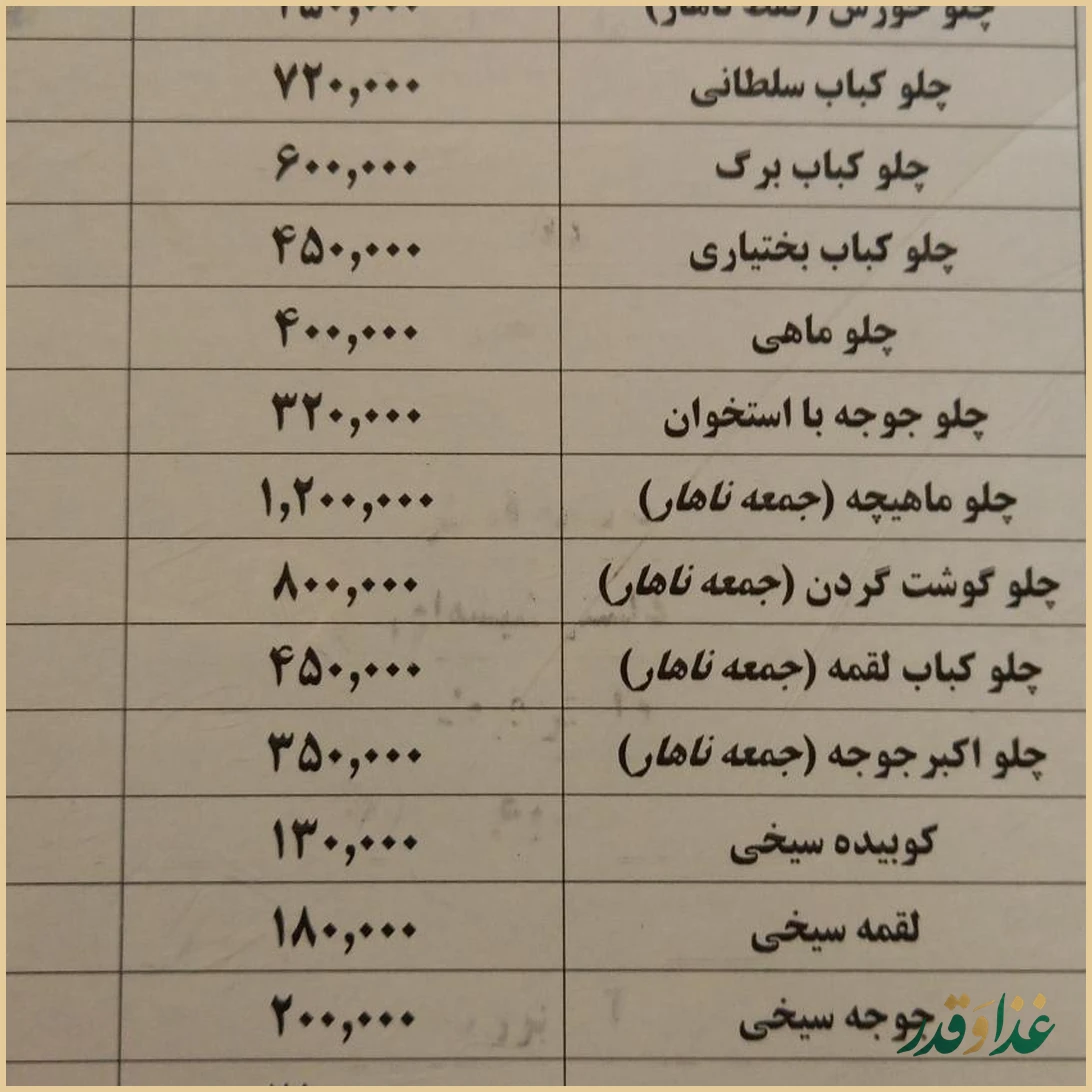 چلو خورش (فقط ناهار)
چلو کباب سلطانی ۷۲۰,۰۰۰
چلو کباب برگ ۶۰۰,۰۰۰
چلو کباب بختیاری ۴۵۰,۰۰۰
چلو ماهی ۴۰۰,۰۰۰
چلو جوجه با استخوان ۳۲۰,۰۰۰
چلو ماهیچه (جمعه ناهار) ۱,۲۰۰,۰۰۰
چلو گوشت گردن (جمعه ناهار) ۸۰۰,۰۰۰
چلو کباب لقمه (جمعه ناهار) ۴۵۰,۰۰۰
چلو اکبر جوجه (جمعه ناهار) ۳۵۰,۰۰۰
کوبیده سیخی ۱۳۰,۰۰۰
لقمه سیخی ۱۸۰,۰۰۰
جوجه سیخی ۲۰۰,۰۰۰
غذا و قدر